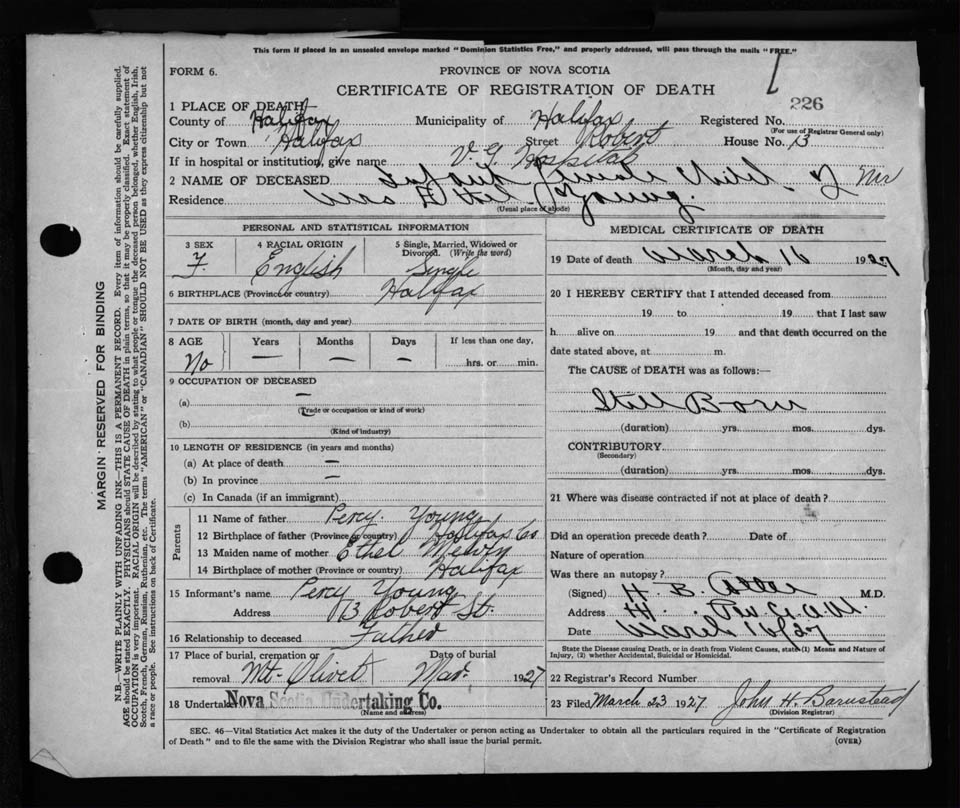 This form if placed in an unsealed envelope marked "Dominion Statistics Free," and properly addressed, will pass through the mails "FREE."
FORM 6.
PROVINCE OF NOVA SCOTIA
CERTIFICATE OF REGISTRATION OF DEATH
226
1 PLACE OF DEATH
County of Halifax Municipality of Halifax Registered No.
(For use of Registrar General only)
City or Town Halifax Street Robert House No. 13
If in hospital or institution, give name V. G. Hospital
2 NAME OF DECEASED Infant female Child of Mr
Residence Mrs Young.
(Usual place of abode)
PERSONAL AND STATISTICAL INFORMATION
3 SEX 4 RACIAL ORIGIN 5 Single, Married, Widowed or Divorced. (Write the word)
F. English Single
6 BIRTHPLACE (Province or country) Halifax
7 DATE OF BIRTH (month, day and year)
8 AGE Years Months Days If less than one day,
No — — — hrs. or min.
9 OCCUPATION OF DECEASED
(a) —
(Trade or occupation or kind of work)
(b)
(Kind of industry)
10 LENGTH OF RESIDENCE (in years and months)
(a) At place of death —
(b) In province —
(c) In Canada (if an immigrant)
Parents
11 Name of father Percy Young
12 Birthplace of father (Province or country) Halifax Co
13 Maiden name of mother Ethel
14 Birthplace of mother (Province or country) Halifax
15 Informant's name Percy Young
Address 13 Robert St.
16 Relationship to deceased Father
17 Place of burial, cremation or removal Mt. Olivet Date of burial Mar. 1927
18 Undertaker Nova Scotia Undertaking Co.
(Name and address)
MEDICAL CERTIFICATE OF DEATH
19 Date of death March 16 1927
(Month, day and year)
20 I HEREBY CERTIFY that I attended deceased from
19 to 19 that I last saw
h alive on 19 and that death occurred on the
date stated above, at m.
The CAUSE of DEATH was as follows:—
Still Born
(duration) yrs. mos. dys.
CONTRIBUTORY
(Secondary)
(duration) yrs. mos. dys.
21 Where was disease contracted if not at place of death?
Did an operation precede death? Date of
Nature of operation
Was there an autopsy?
(Signed) H. B. M.D.
Address
Date March 16/27
State the Disease causing Death, or in death from Violent Causes, state (1) Means and Nature of Injury, (2) whether Accidental, Suicidal or Homicidal.
22 Registrar's Record Number
23 Filed March 23 1927 John H. Barnstead
(Division Registrar)
SEC. 46—Vital Statistics Act makes it the duty of the Undertaker or person acting as Undertaker to obtain all the particulars required in the "Certificate of Registration
of Death" and to file the same with the Division Registrar who shall issue the burial permit.
(OVER)
MARGIN RESERVED FOR BINDING
N.B.—WRITE PLAINLY WITH UNFADING INK—THIS IS A PERMANENT RECORD. Every item of information should be carefully supplied.
AGE should be stated EXACTLY. PHYSICIANS should STATE CAUSE OF DEATH in plain terms, so that it may be properly classified. Exact statement of
OCCUPATION is very important. RACIAL ORIGIN will be described by stating to what people or tongue the deceased person belonged, whether English, Irish,
Scotch, French, German, Russian, Ruthenian, etc. The terms "AMERICAN" or "CANADIAN" SHOULD NOT BE USED as they express citizenship but not
a race or people. See instructions on back of Certificate.